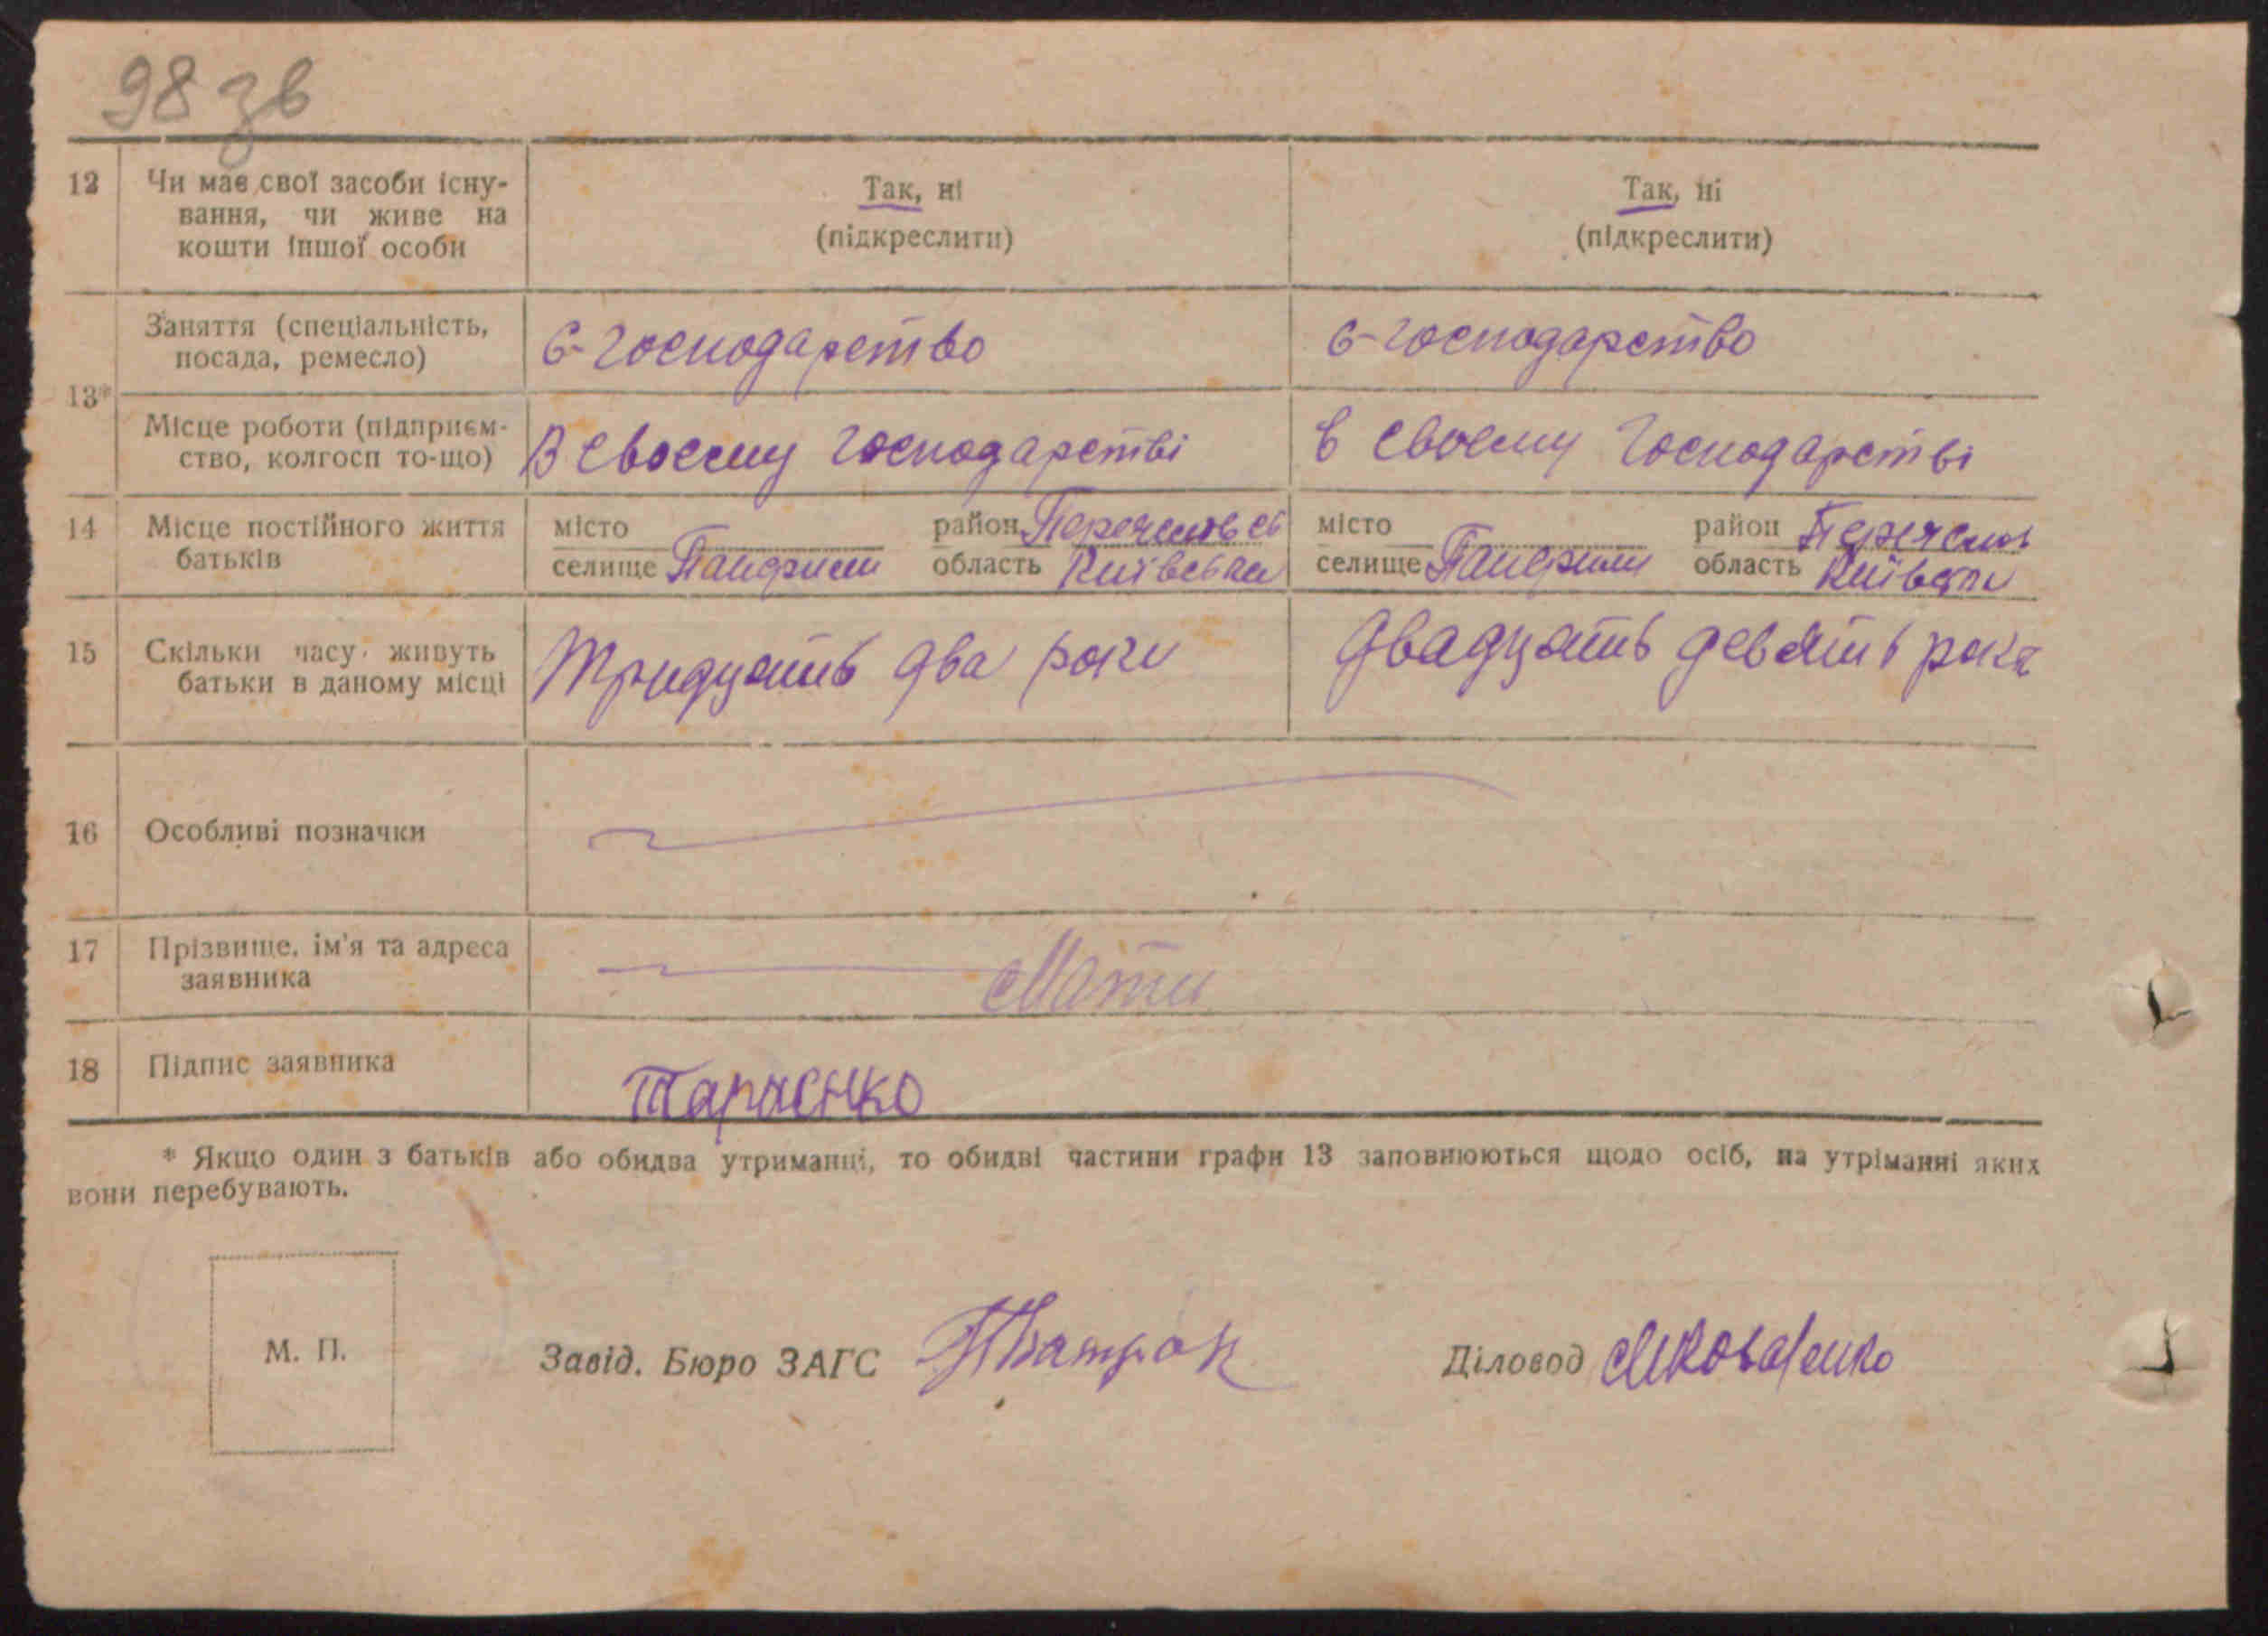 98 зв
12 Чи має свої засоби існу- Так, ні Так, ні
вання, чи живе на (підкреслити) (підкреслити)
кошти іншої особи
Заняття (спеціальність, С-господарство С-господарство
посада, ремесло)
13*
Місце роботи (підприєм- В своему господарстві в своему господарстві
ство, колгосп то-що)
14 Місце постійного життя місто район місто район
батьків селище область Київська селище область
15 Скільки часу живуть Тридцать два роки Двадцать девять рока
батьки в даному місці
16 Особливі позначки
17 Прізвище, ім'я та адреса Мати
заявника
18 Підпис заявника
* Якщо один з батьків або обидва утриманці, то обидві частини графи 13 заповнюються щодо осіб, на утріманні яких
вони перебувають.
М. П. Завід. Бюро ЗАГС Діловод Коваленко